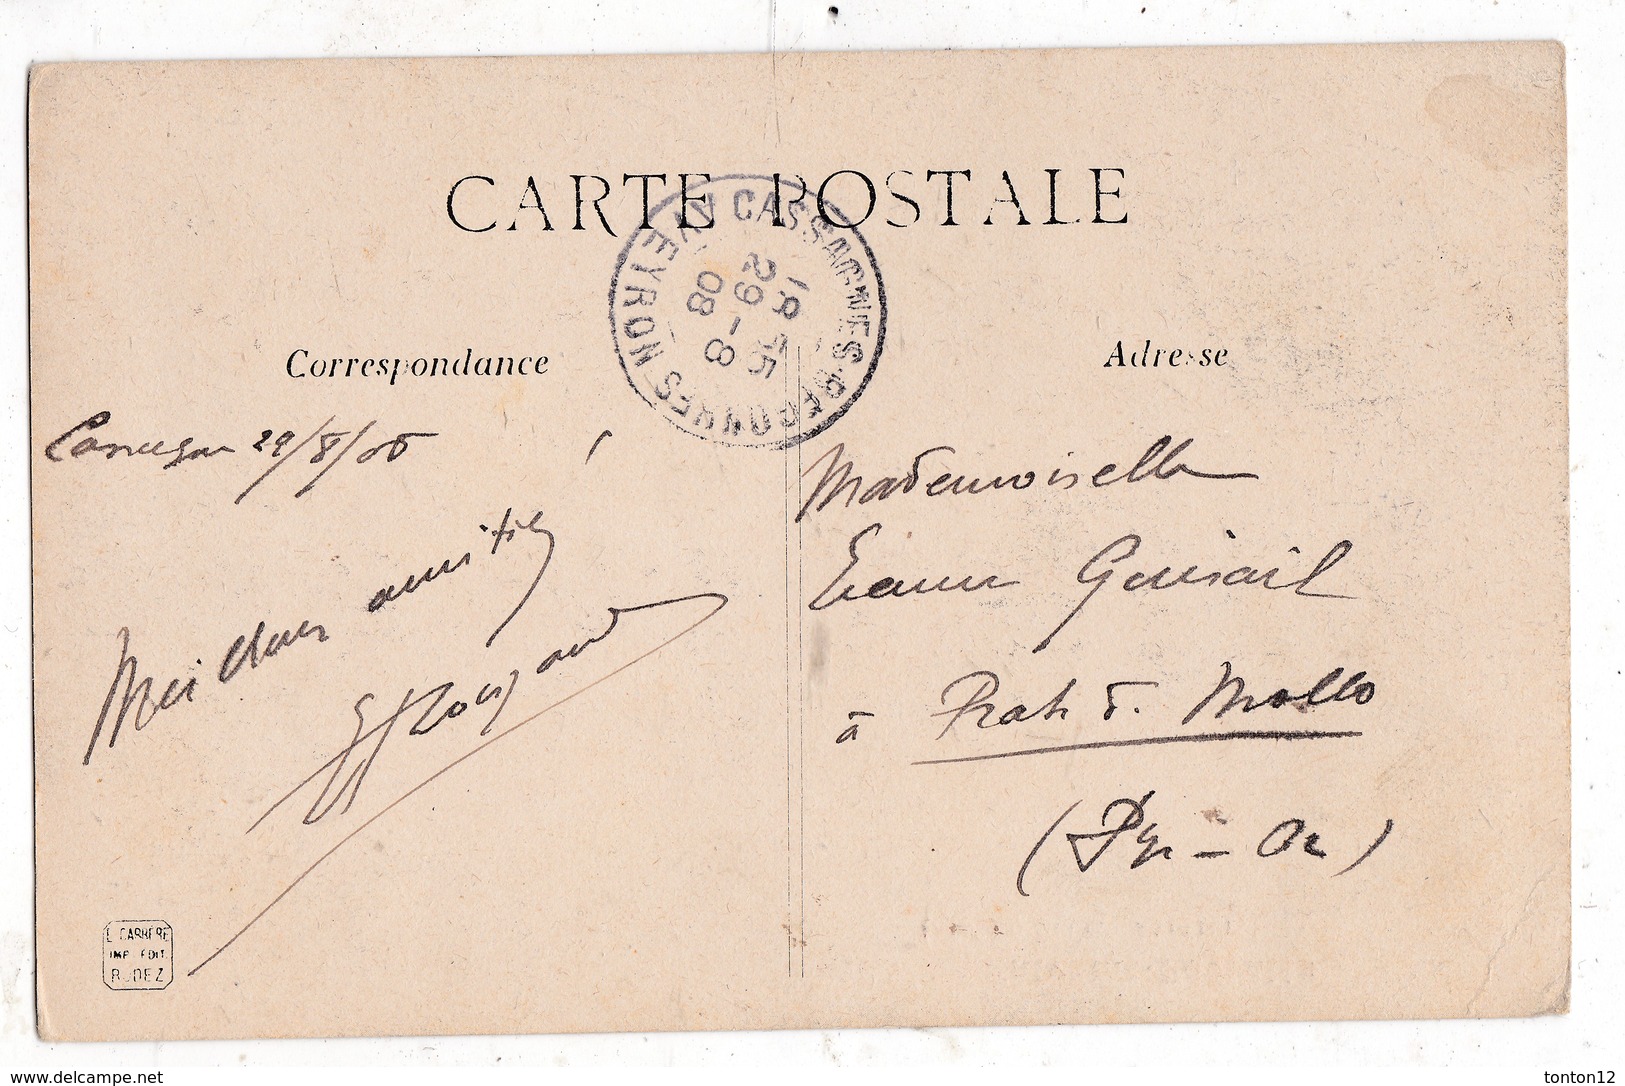 CARTE POSTALE
CASSAGNES-BEGONHES AVEYRON
18 15
29 - 8
08
Correspondance
Adresse
29/8/08
Meilleurs amitiés
Mademoiselle
à Prats d. Mollo
(Pyr - Or)
E. CARRÈRE
IMP. EDIT.
RODEZ
www.delcampe.net
tonton12